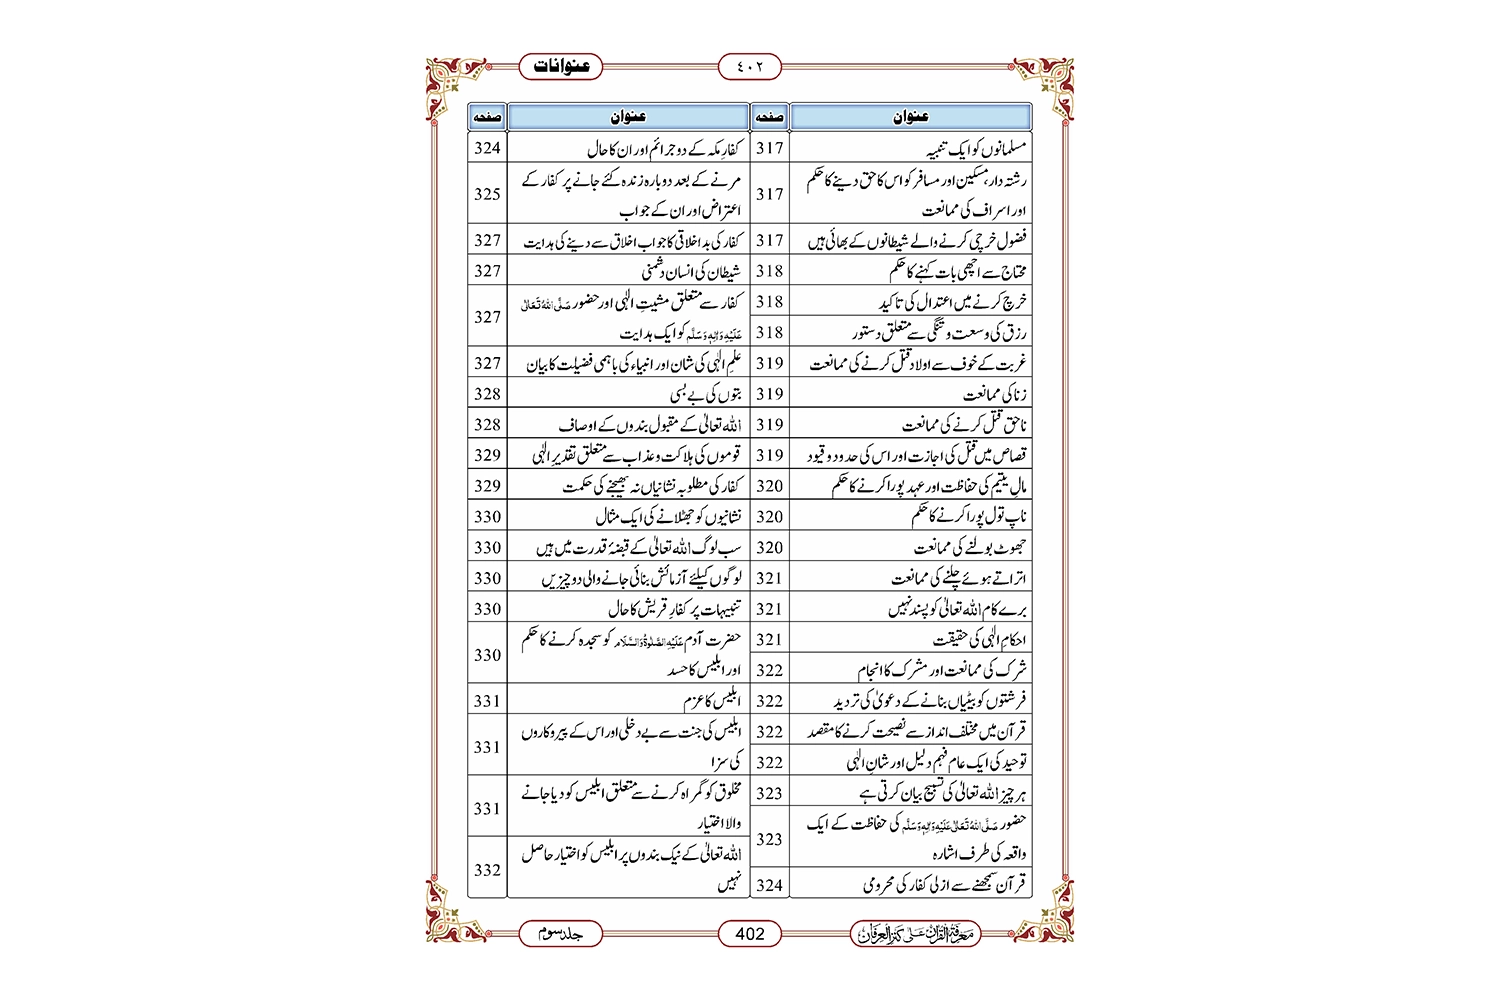 عنوانات
٤٠٢
عنوان
صفحہ
مسلمانوں کو ایک تنبیہ
317
رشتہ دار، مسکین اور مسافر کو اس کا حق دینے کا حکم
اور اسراف کی ممانعت
317
فضول خرچی کرنے والے شیطانوں کے بھائی ہیں
317
محتاج سے اچھی بات کہنے کا حکم
318
خرچ کرنے میں اعتدال کی تاکید
318
رزق کی وسعت و تنگی سے متعلق دستور
318
غربت کے خوف سے اولاد قتل کرنے کی ممانعت
319
زنا کی ممانعت
319
ناحق قتل کرنے کی ممانعت
319
قصاص میں قتل کی اجازت اور اس کی حدود و قیود
319
مالِ یتیم کی حفاظت اور عہد پورا کرنے کا حکم
320
ناپ تول پورا کرنے کا حکم
320
جھوٹ بولنے کی ممانعت
320
اتراتے ہوئے چلنے کی ممانعت
321
برے کام اللہ تعالیٰ کو پسند نہیں
321
احکامِ الٰہی کی حقیقت
321
شرک کی ممانعت اور مشرک کا انجام
322
فرشتوں کو بیٹیاں بنانے کے دعویٰ کی تردید
322
قرآن میں مختلف انداز سے نصیحت کرنے کا مقصد
322
توحید کی ایک عام فہم دلیل اور شانِ الٰہی
322
ہر چیز اللہ تعالیٰ کی تسبیح بیان کرتی ہے
323
حضور صَلَّی اللہُ تَعَالٰی عَلَیْہِ وَاٰلِہٖ وَسَلَّم کی حفاظت کے ایک
واقعہ کی طرف اشارہ
323
قرآن سمجھنے سے ازلی کفار کی محرومی
324
عنوان
صفحہ
کفارِ مکہ کے دو جرائم اور ان کا حال
324
مرنے کے بعد دوبارہ زندہ کئے جانے پر کفار کے
اعتراض اور ان کے جواب
325
کفار کی بد اخلاقی کا جواب اخلاق سے دینے کی ہدایت
327
شیطان کی انسان دشمنی
327
کفار سے متعلق مشیتِ الٰہی اور حضور صَلَّی اللہُ تَعَالٰی
عَلَیْہِ وَاٰلِہٖ وَسَلَّم کو ایک ہدایت
327
علمِ الٰہی کی شان اور انبیاء کی باہمی فضیلت کا بیان
327
بتوں کی بے بسی
328
اللہ تعالیٰ کے مقبول بندوں کے اوصاف
328
قوموں کی ہلاکت و عذاب سے متعلق تقدیرِ الٰہی
329
کفار کی مطلوبہ نشانیاں نہ بھیجنے کی حکمت
329
نشانیوں کو جھٹلانے کی ایک مثال
330
سب لوگ اللہ تعالیٰ کے قبضۂ قدرت میں ہیں
330
لوگوں کیلئے آزمائش بنائی جانے والی دو چیزیں
330
تنبیہات پر کفارِ قریش کا حال
330
حضرت آدم عَلَیْہِ الصَّلٰوۃُ وَالسَّلَام کو سجدہ کرنے کا حکم
اور ابلیس کا حسد
330
ابلیس کا عزم
331
ابلیس کی جنت سے بے دخلی اور اس کے پیروکاروں
کی سزا
331
مخلوق کو گمراہ کرنے سے متعلق ابلیس کو دیا جانے
والا اختیار
331
اللہ تعالیٰ کے نیک بندوں پر ابلیس کو اختیار حاصل
نہیں
332
معرفۃ القرآن علٰی کنز العرفان
402
جلد سوم